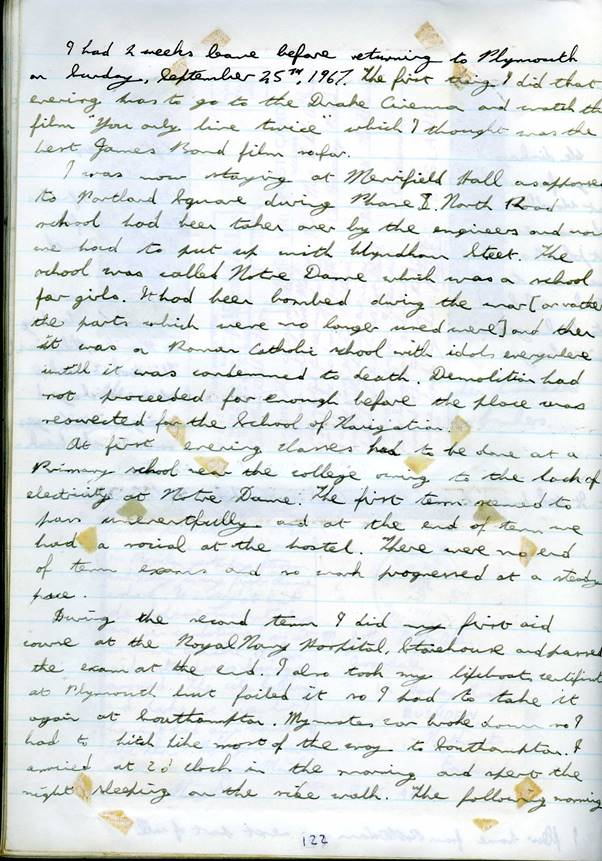 I had 2 weeks leave before returning to Plymouth
on Sunday, September 25TH, 1967. The first thing I did that
evening was to go to the Drake Cinema and watch the
film "You only live twice" which I thought was the
best James Bond film so far.
I was now staying at Merrifield Hall as opposed
to Portland Square during Phase I. North Road
school had been taken over by the engineers and now
we had to put up with Wyndham Street. The
school was called Notre Dame which was a school
for girls. It had been bombed during the war [or rather
the parts which were no longer used were] and then
it was a Roman Catholic school with idols everywhere
until it was condemned to death. Demolition had
not proceeded far enough before the place was
resurrected for the School of Navigation.
At first evening classes had to be done at a
Primary school near the college owing to the lack of
electricity at Notre Dame. The first term seemed to
pass uneventfully and at the end of term we
had a social at the hostel. There were no end
of term exams and so work progressed at a steady
pace.
During the second term I did my first aid
course at the Royal Navy Hospital, Stonehouse and passed
the exam at the end. I also took my lifeboat certificate
at Plymouth but failed it so I had to take it
again at Southampton. My mates car broke down so I
had to hitch hike most of the way to Southampton. I
arrived at 2 o' clock in the morning and spent the
night sleeping on the side walk. The following morning
122